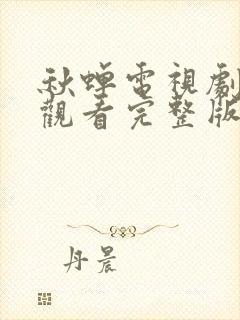 秋蟬電視劇
觀看完整版
丹晨